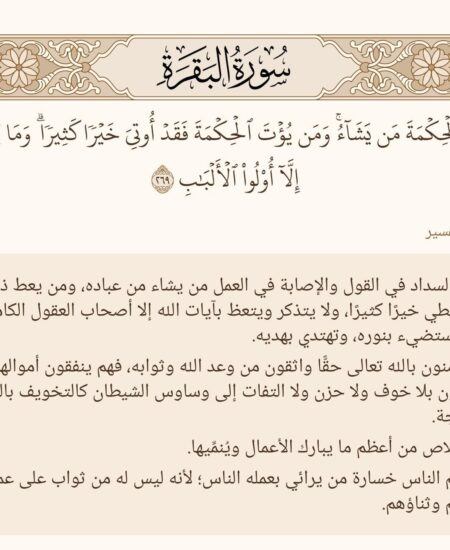 سُورَةُ البَقَرَةِ
لۡحِكۡمَةَ مَن يَشَآءُۚ وَمَن يُؤۡتَ ٱلۡحِكۡمَةَ فَقَدۡ أُوتِيَ خَيۡرٗا كَثِيرٗاۗ وَمَا
إِلَّآ أُوْلُواْ ٱلۡأَلۡبَٰبِ ٢٦٩
سير
لسداد في القول والإصابة في العمل من يشاء من عباده، ومن يعط ذ
طي خيرًا كثيرًا، ولا يتذكر ويتعظ بآيات الله إلا أصحاب العقول الكام
ستضيء بنوره، وتهتدي بهديه.
منون بالله تعالى حقًّا واثقون من وعد الله وثوابه، فهم ينفقون أموالهـ
ن بلا خوف ولا حزن ولا التفات إلى وساوس الشيطان كالتخويف بالـ
جة.
لاص من أعظم ما يبارك الأعمال ويُنمِّيها.
م الناس خسارة من يرائي بعمله الناس؛ لأنه ليس له من ثواب على عمـ
م وثناؤهم.